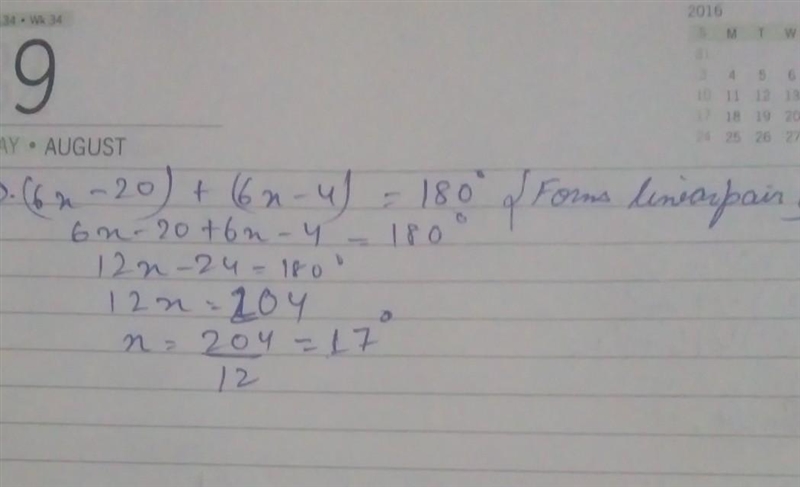 34 • Wk 34
2016
9
S M T W
31
3 4 5 6
10 11 12 13
17 18 19 20
24 25 26 27
AY • AUGUST
).(6x-20) + (6x-4) = 180° { Forms linearpair
6x-20+6x-4 = 180°
12x-24=180°
12x=204
x= 204/12 =17°